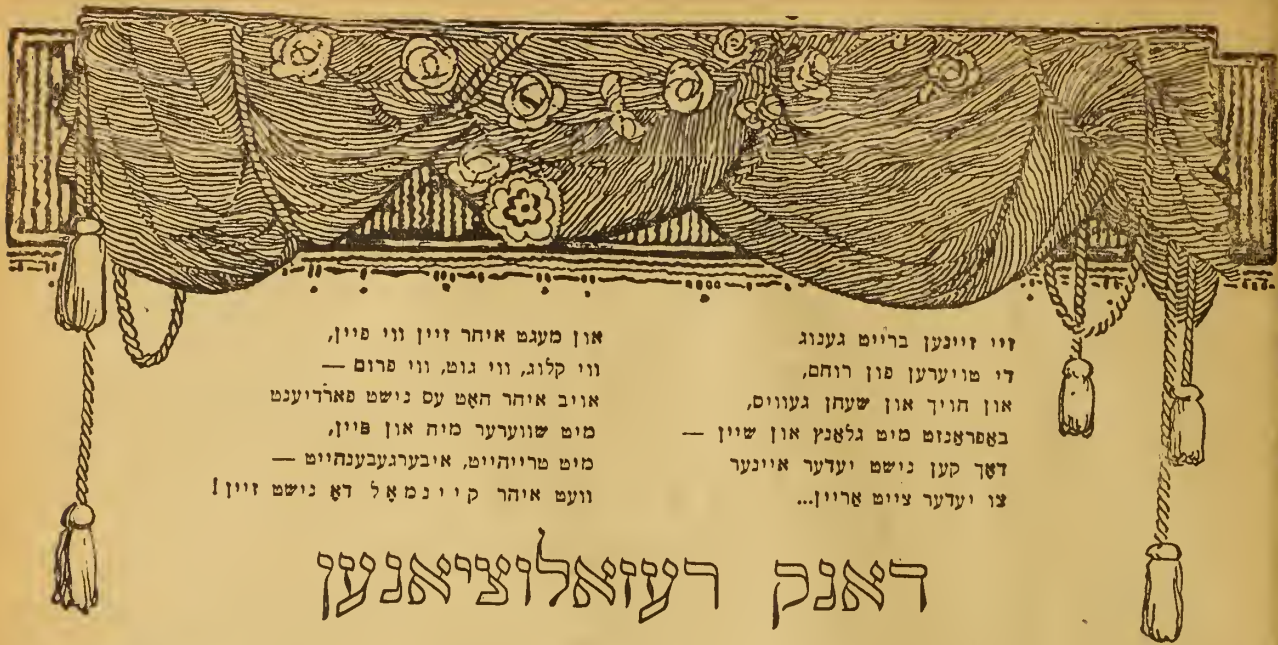 זיי זיינען ברייט גענוג
די טויערען פון רוהם,
און הויך און שעהן געוויס,
באַפראַנזט מיט גלאַנץ און שיין —
דאָך קען נישט יעדער איינער
צו יעדער צייט אַריין...
און מעגט איהר זיין ווי פיין,
ווי קלוג, ווי גוט, ווי פרום —
אויב איהר האָט עס נישט פאַרדיענט
מיט שווערער מיה און פּיין,
מיט טרייהייט, איבערגעבענהייט —
וועט איהר קיינמאָל דאָ נישט זיין!
דאנק רעזאלוציאנען